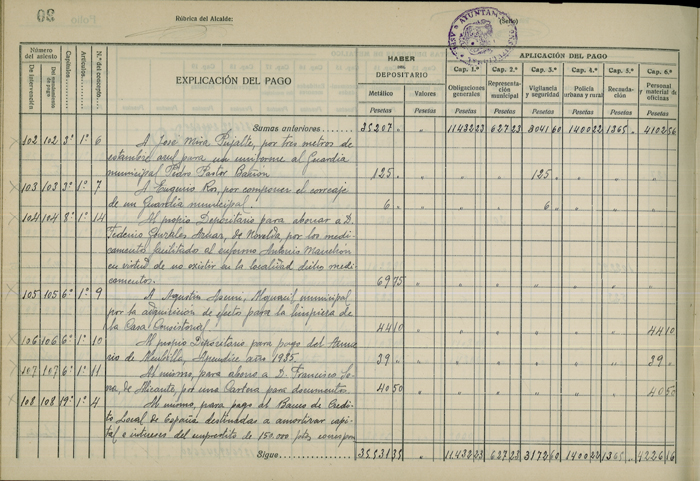 30
Folio
Rúbrica del Alcalde:
(Sello)
Número del asiento
De intervención
Del mandamiento de pago
Capítulos
Artículos
N.º del concepto
EXPLICACIÓN DEL PAGO
HABER DEL DEPOSITARIO
Metálico
Pesetas
Valores
Pesetas
APLICACIÓN DEL PAGO
Cap. 1.º Cap. 2.º Cap. 3.º Cap. 4.º Cap. 5.º Cap. 6.º
Obligaciones generales
Representación municipal
Vigilancia y seguridad
Policía urbana y rural
Recaudación
Personal y material de oficinas
Pesetas Pesetas Pesetas Pesetas Pesetas Pesetas
Sumas anteriores 35207 " " 1143223 62723 304160 140022 1365 " 410256
102 102 3º 1º 6 A José Mira Pujalte, por tres metros de
estambre azul para un uniforme al Guardia
municipal Pedro Pastor 125 " " " " 125 " " " "
103 103 3º 1º 7 A Eugenio Ros, por componer el correaje
de un Guardia municipal 6 " " " " 6 " " " "
104 104 8º 1º 14 Al propio Depositario para abonar a D.
Federico de Novelda, por los medi-
camentos facilitados al enfermo Antonio
en virtud de no existir en la localidad dichos medi-
camentos. 6975 " " " " " " "
105 105 6º 1º 9 A Agustín Alguacil municipal
por la adquisición de efectos para la limpieza de
la Casa Consistorial 4410 " " " " " " 4410
106 106 6º 1º 10 Al propio Depositario para pago del Anua-
rio de Apéndice año 1935. 39 " " " " " " " 39 "
107 107 6º 1º 11 Al mismo, para abono a D. Francisco
de Alicante, por una Cartera para documentos. 4050 " " " " " " 4050
108 108 19º 1º 4 Al mismo, para pago al Banco de Crédi-
to Local de España destinadas a amortizar capi-
tal e intereses del empréstito de 150.000 ptas,
Sigue 3553135 " 1143223 62723 317260 140022 1365 " 422616